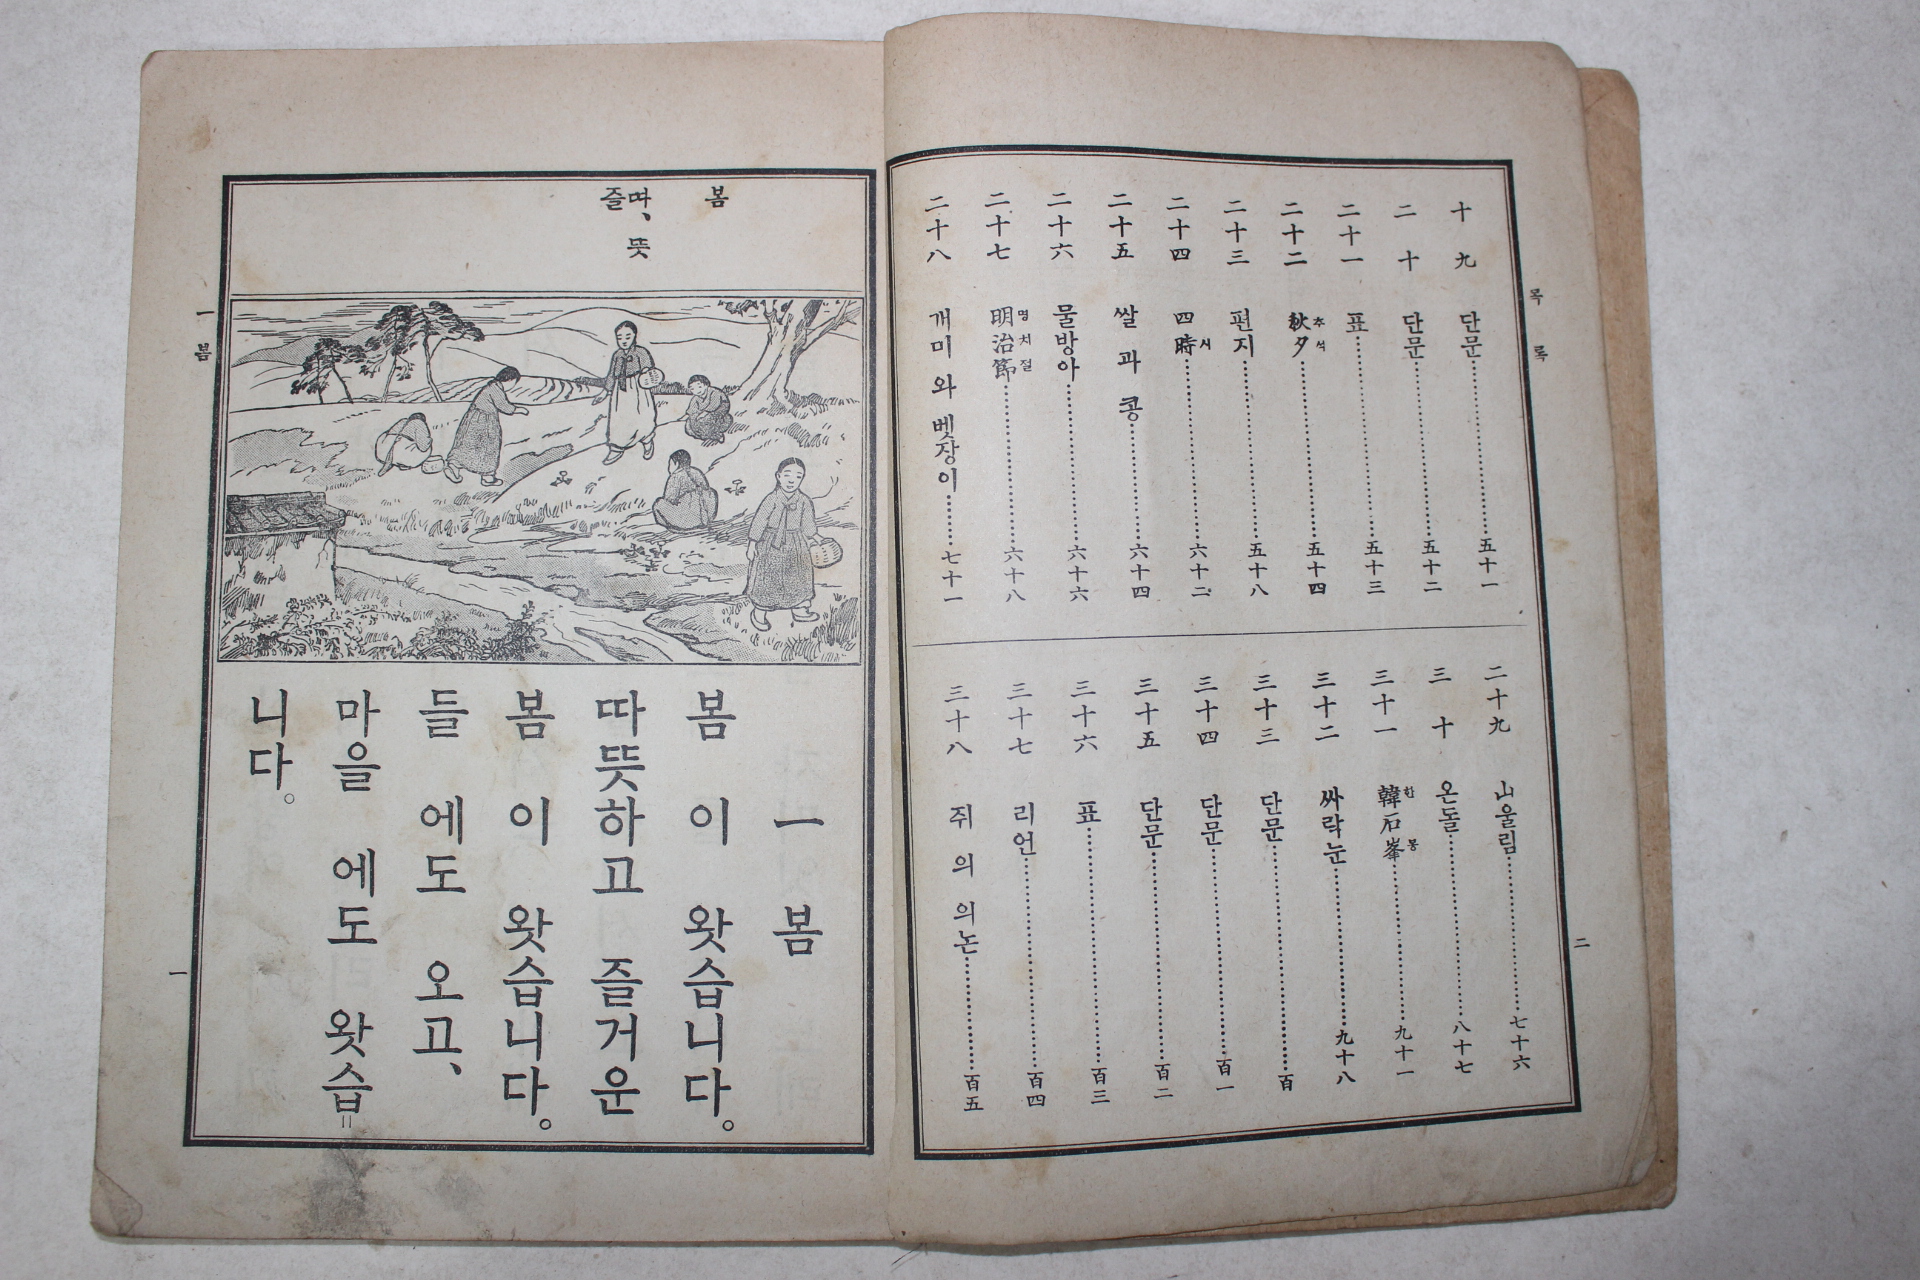 목록
十九 단문 五十一
二十 단문 五十二
二十一 표 五十三
二十二 秋夕 추석 五十四
二十三 편지 五十八
二十四 四時 시 六十二
二十五 쌀과 콩 六十四
二十六 물방아 六十六
二十七 明治節 명치절 六十八
二十八 개미와 벳장이 七十一
二十九 山울림 七十六
三十 온돌 八十七
三十一 韓石峯 한 봉 九十一
三十二 싸락눈 九十八
三十三 단문 百
三十四 단문 百一
三十五 단문 百二
三十六 표 百三
三十七 리언 百四
三十八 쥐의 의논 百五
二
봄
따、뜻
즐
一 봄
봄이 왓습니다。
따뜻하고 즐거운
봄이 왓습니다。
들에도 오고、
마을에도 왓습=
니다。
一 봄
一